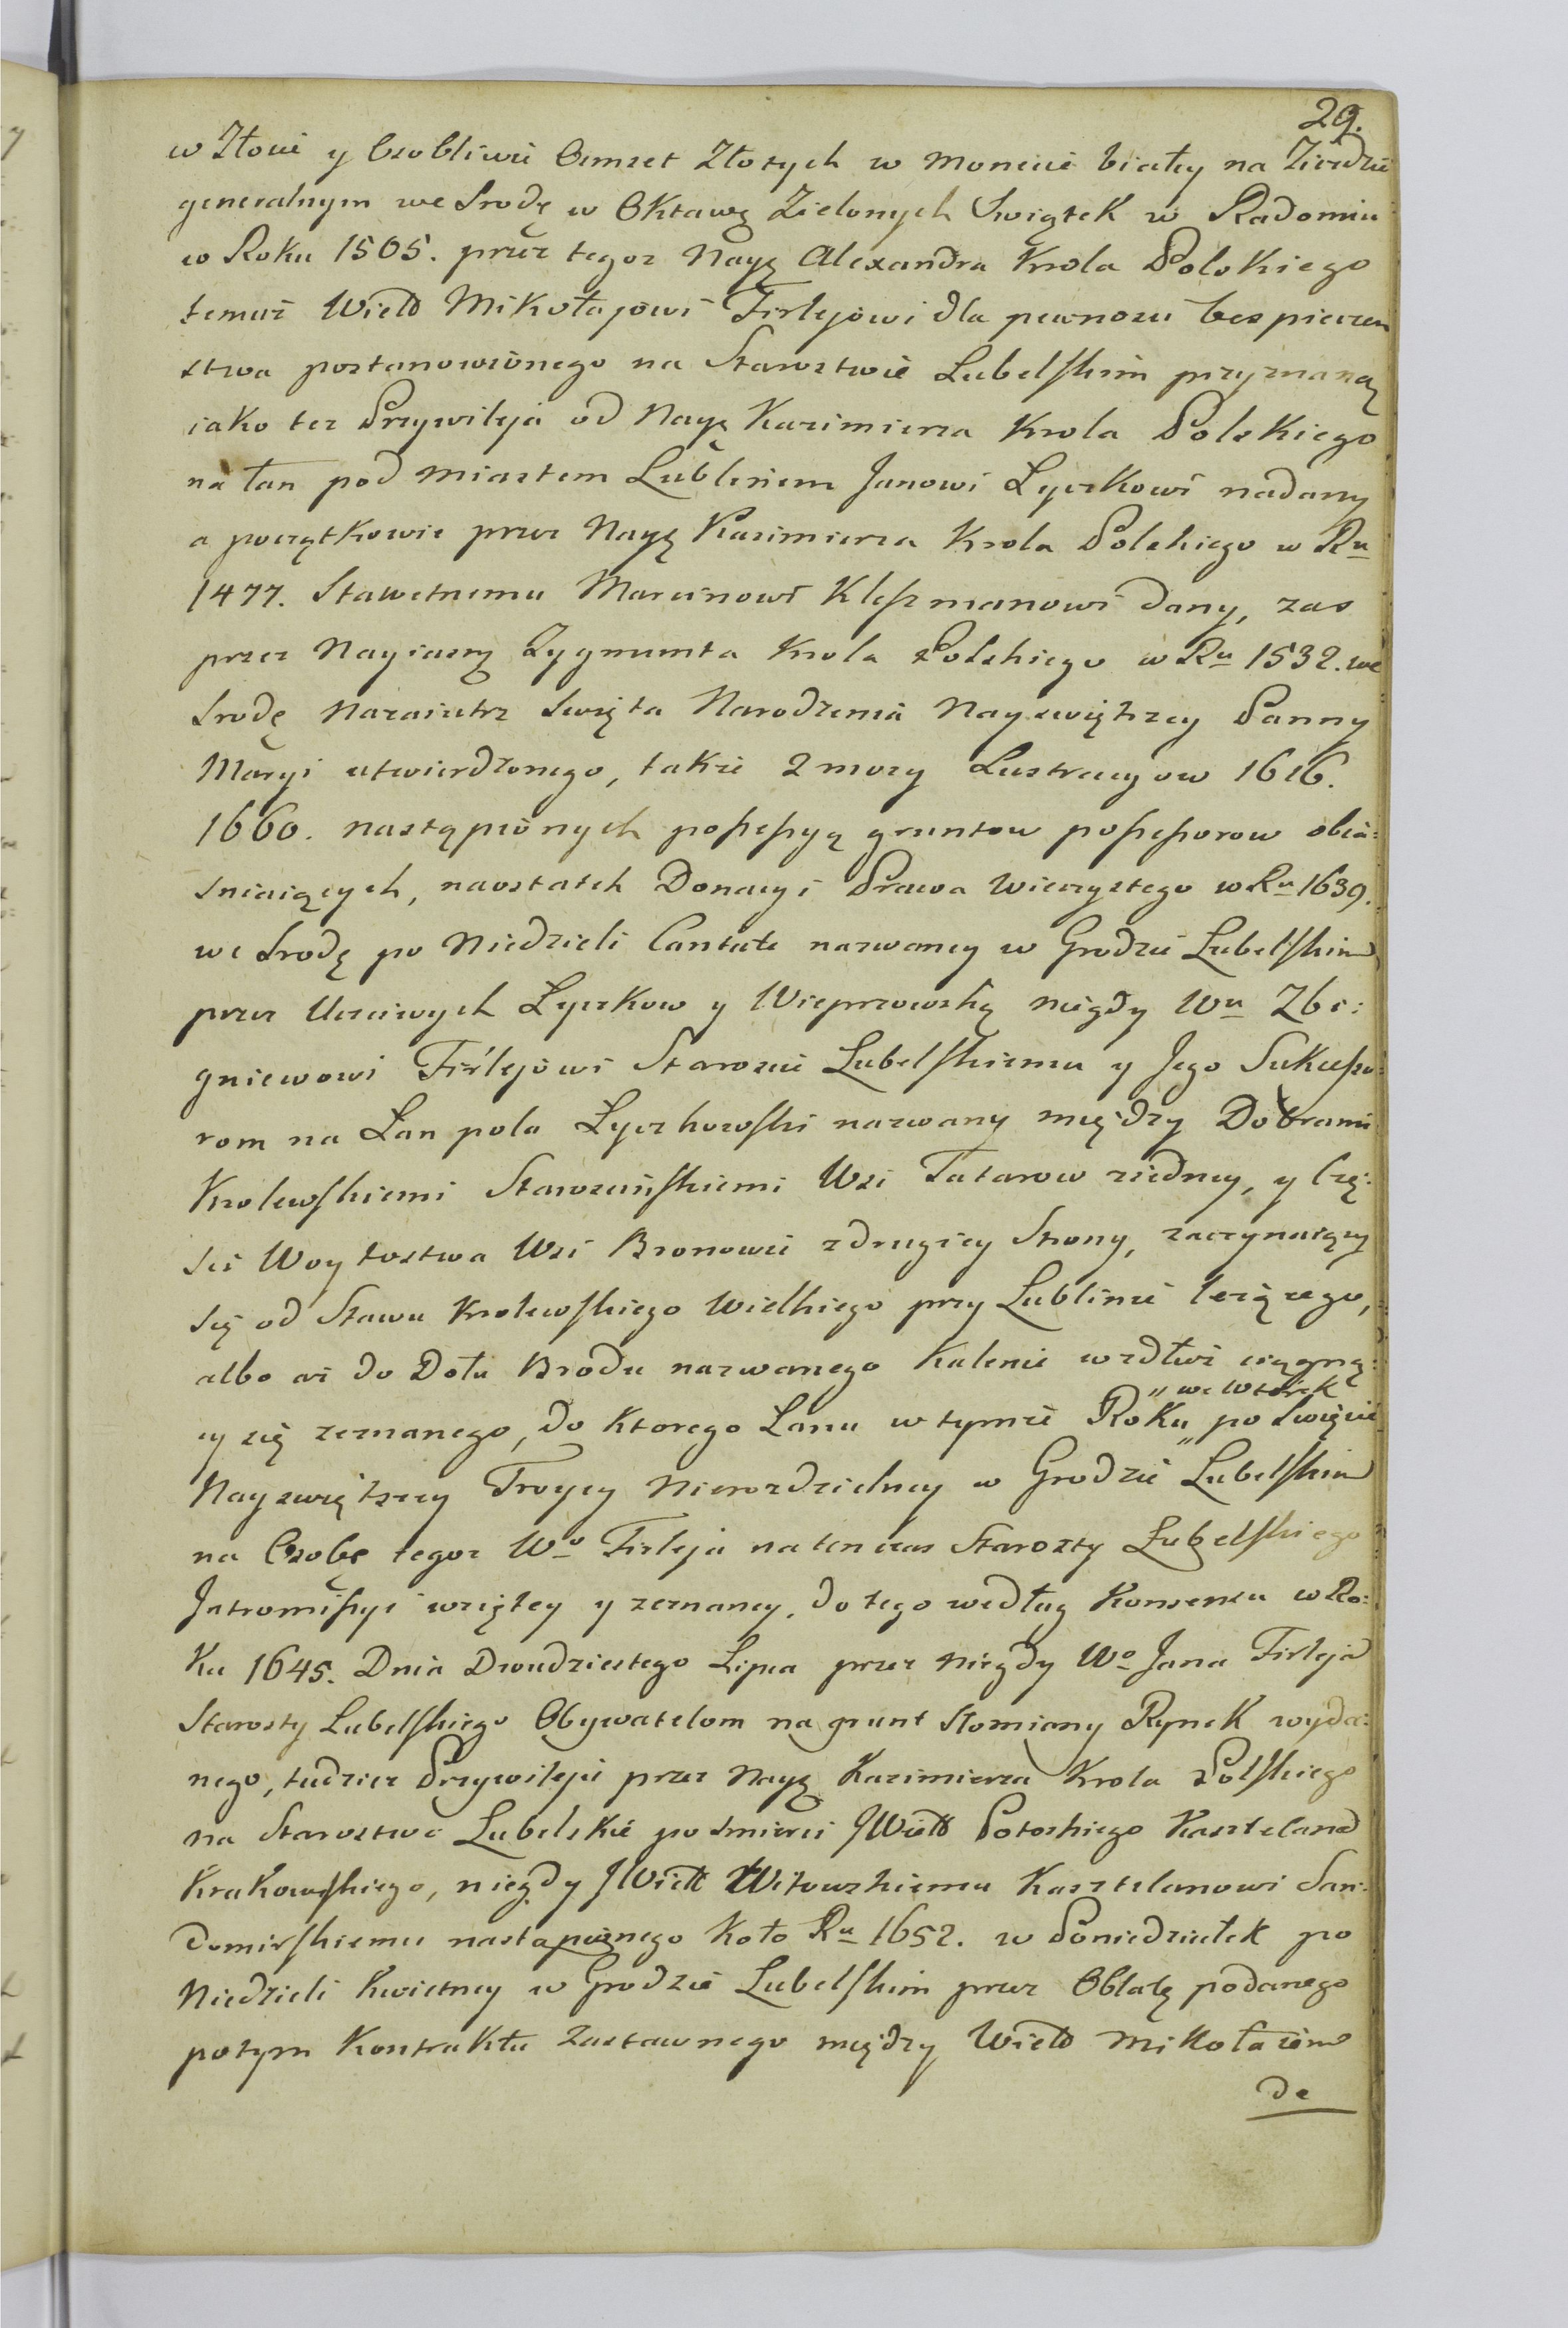 29.
w Złocie y Osobliwie Osmset Złotych w Monecie białey na Zieździe
generalnym we Srodę w Oktawę Zielonych Swiątek w Radomiu
w Roku 1505. przez tegoz Nayę Alexandra Krola Polskiego
temuż Wielo Mikołajowi Firlejowi dla pewnosci bespieczen
stwa postanowionego na Starostwie Lubelskim przyznaną
iako tez Przywileja od Nayę Kazimierza Krola Polskiego
na łan pod miastem Lublinem Janowi Łyczkowi nadany
a początkowie przez Nayę Kazimierza Krola Polskiego w Ru
1477. Sławetnemu Marcinowi Klessmanowi dany, zas
przez Nayiasnę Zygmunta Krola Polskiego w Ru 1532. we
Srodę nazaiutrz Swięta Narodzenia Nayswiętszey Panny
Maryi utwierdzonego, także z mocy Lustracyow 1616.
1660. nastąpionych possessyą gruntow possessorow obia:
sniaiących, naostatek Donacyi Prawa Wieczystego w Ru 1639.
we Srodę po Niedzieli Cantate nazwaney w Grodzie Lubelskim
przez Uczciwych Łyczkow y Wieprzowską niegdy Wu Zbi:
gniewowi Firlejowi Staroscie Lubelskiemu y Jego Sukcesso:
rom na Łan pola Łyczkowski nazwany między Dobrami
Krolewskiemi Staroscińskiemi Wsi Tatarow ziedney, y Czę:
sci Woytostwa Wsi Bronowic zdrugiey Strony, zaczynaiący
się od Stawu Krolewskiego Wielkiego przy Lublinie leżącego,
albo aż do Dołu Brodu nazwanego Kalenie wzdłuż ciągną:
cy się zeznanego, do ktorego Łanu w tymże Roku „ po Swięcie
„ we Wtorek
Nayswiętszey Troycy Nierozdzielney w Grodzie Lubelskim
na Osobę tegoz Wo Firleja natenczas Starosty Lubelskiego
Jntromissyi wziętey y zeznaney, do tego według Konsensu w Ro:
ku 1645. Dnia Dwudziestego Lipca przez niegdy Wo Jana Firleja
Starosty Lubelskiego Obywatelom na grunt Słomiany Rynek wyda:
nego, tudziez Przywileju przez Nayę Kazimierza Krola Polskiego
na Starostwo Lubelskie po smierci JWielo Potockiego Kasztelana
Krakowskiego, niegdy JWielo Witowskiemu Kasztelanowi San:
domirskiemu nastąpionego Koło Ru 1652. w Poniedziałek po
Niedzieli Kwietney w Grodzie Lubelskim przez Oblatę podanego
potym Kontraktu zastawnego między Wielo Mikołaiem
de